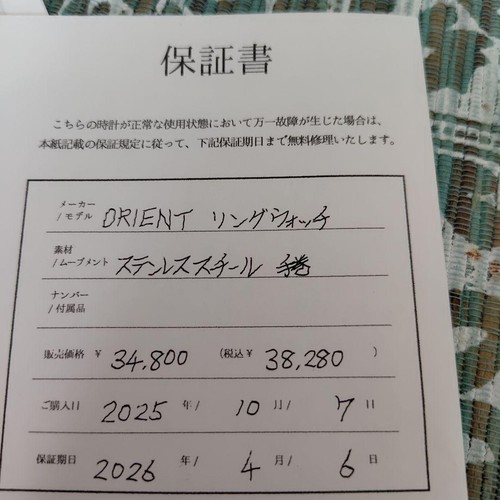 保証書
こちらの時計が正常な使用状態において万一故障が生じた場合は、
本紙記載の保証規定に従って、下記保証期日まで無料修理いたします。
メーカー
/モデル ORIENT リングウォッチ
素材
/ムーブメント ステンレススチール 手巻
ナンバー
/付属品
販売価格 ¥ 34,800 (税込¥ 38,280 )
ご購入日 2025 年/ 10 月/ 7 日
保証期日 2026 年/ 4 月/ 6 日